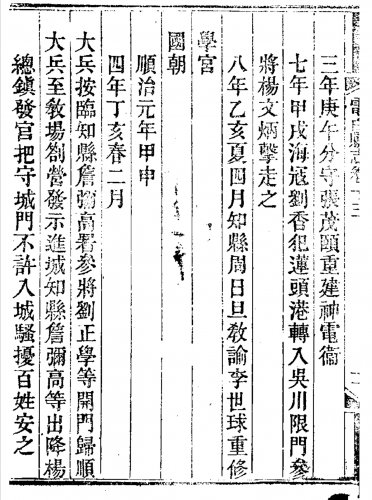 電白縣志卷
三年庚午分守張茂頤重建神電衞
七年甲戌海寇劉香犯蓮頭港轉入吳川限門參
將楊文炳擊走之
八年乙亥夏四月知縣周日旦敎諭李世球重修
學宮
國朝
順治元年甲申
四年丁亥春二月
大兵按臨知縣詹彌高署參將劉正學等開門歸順
大兵至敎場劄營發示進城知縣詹彌高等出降楊
總鎭發官把守城門不許入城騷擾百姓安之